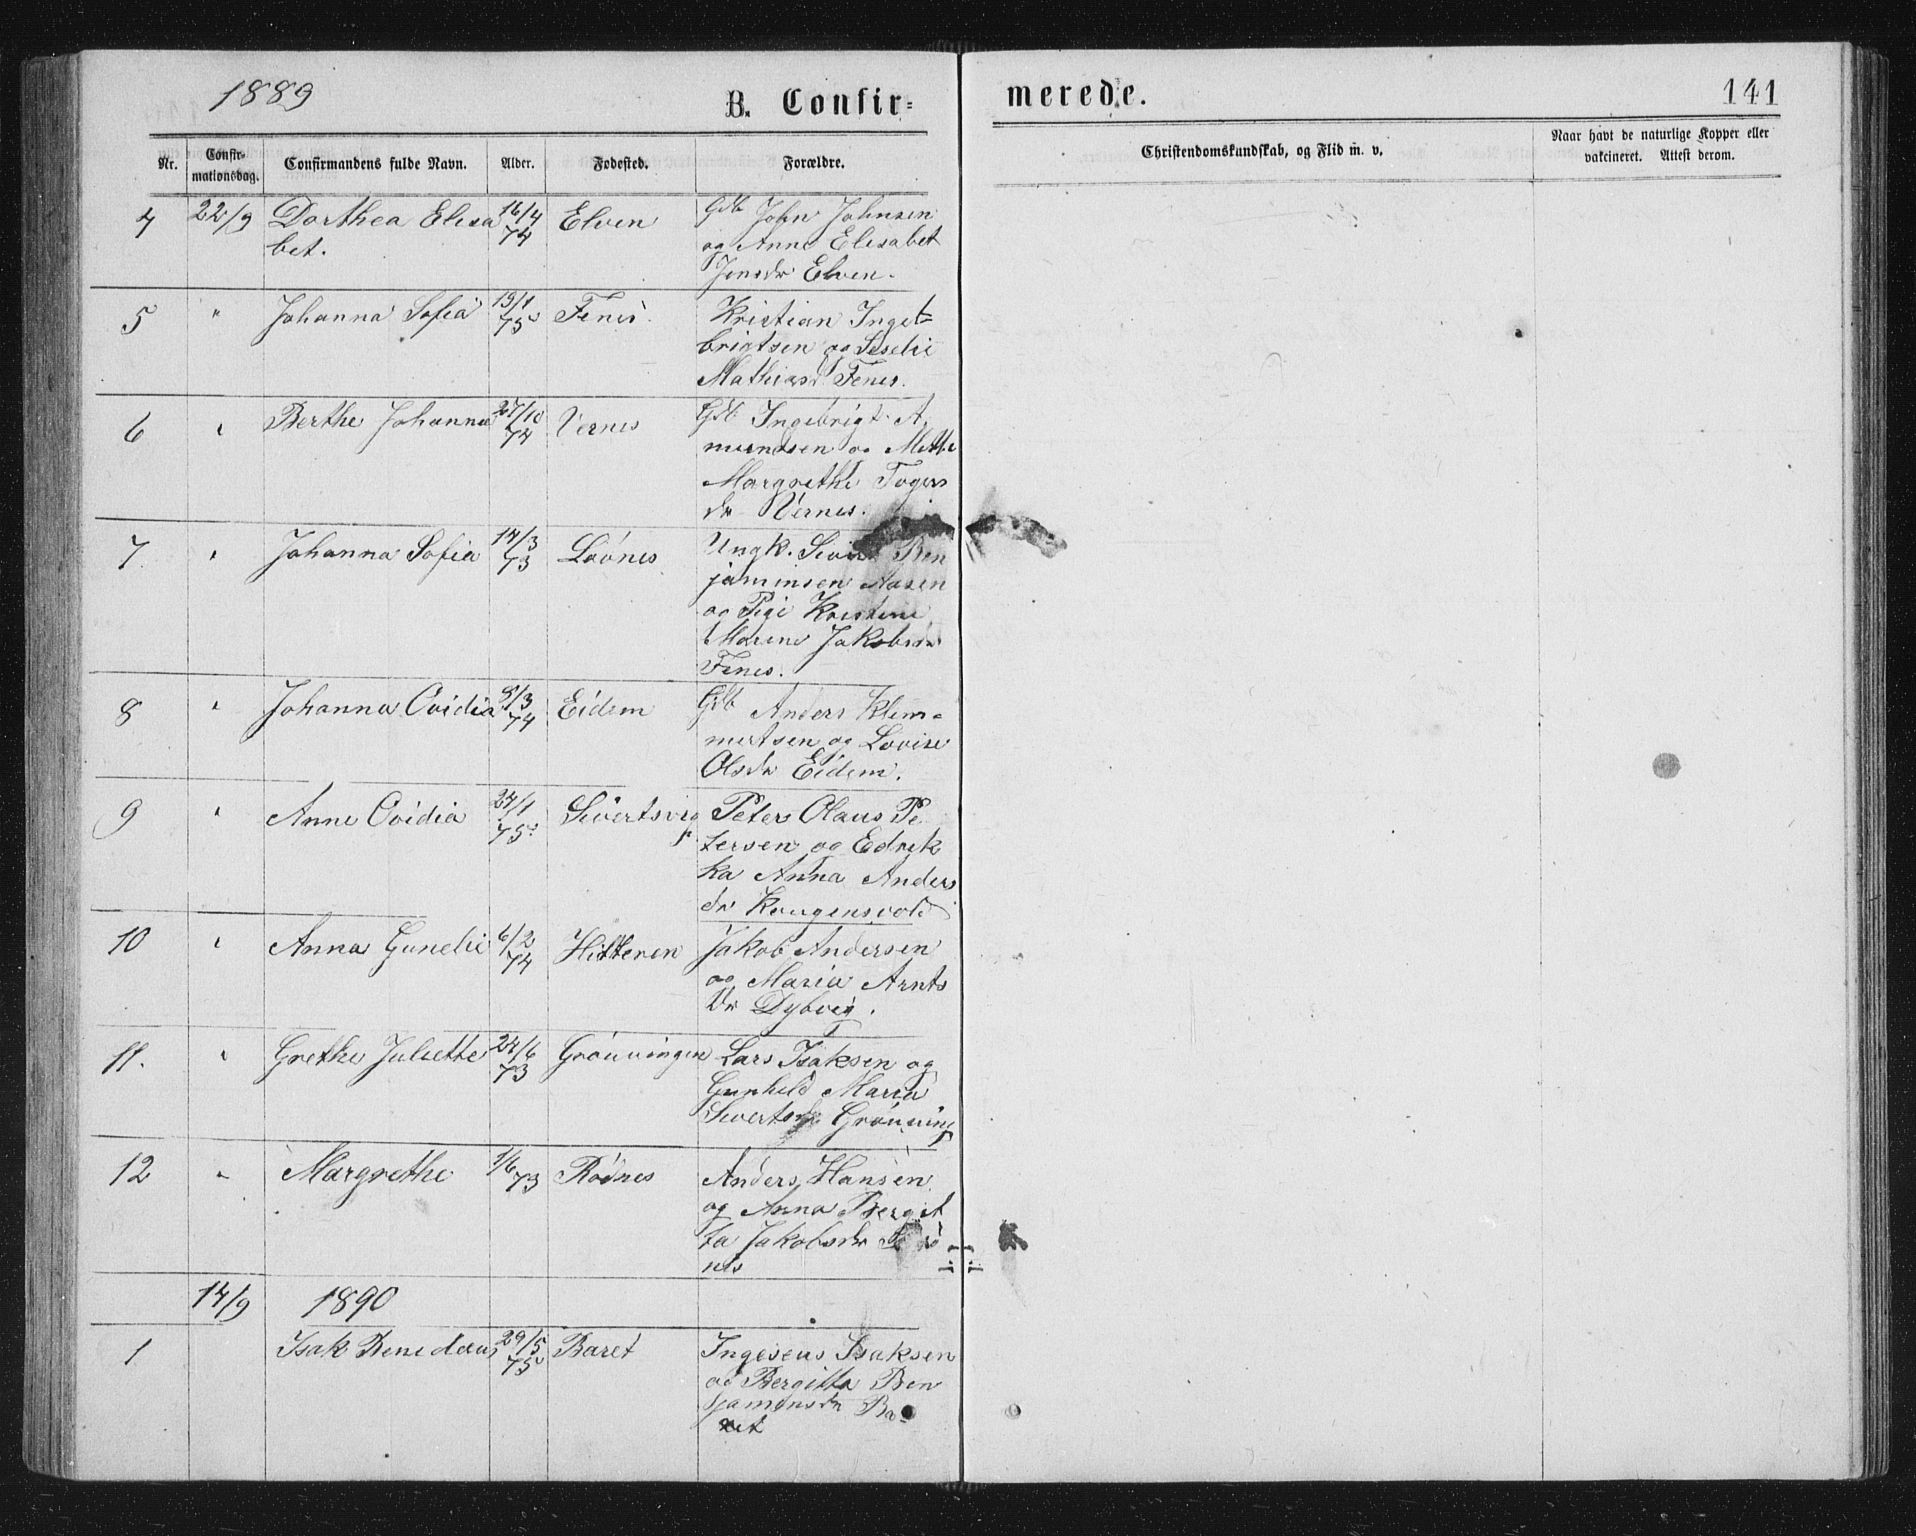 1889
B. Confirmerede.
141
Nr. Confirmationsdag. Confirmandens fulde Navn. Alder. Fødested. Forældre. Christendomskundskab, og Flid m. v. Naar havt de naturlige Kopper eller vakcineret. Attest derom.
4 22/9 Dorthea Elisa 16/4 Elven Gdb John Johnsen
bet. 74 og Anne Elisabet
Jensdr Elven.
5 " Johanna Sofia 13/1 Fenes. Kristian Inge=
75 brigtsen og Seselie
Mathiasd Fenes.
6 " Berthe Johanna 27/10 Vernes Gdb Ingebrigt A
74 mundsen og Mette
Margrethe Togers
dr Vernes.
7 " Johanna Sofia 14/3 Ungk. Sivert Ben
73 jaminsen Aasen
og Pige Kristine
Marine Jakobsdr
Fenes.
8 " Johanna Ovidia 8/3 Eidem Gdb Anders Klem=
74 metsen og Lovise
Olsdr Eidem.
9 " Anne Ovidia 24/1 Sivertsvig Peter Olaus Pe
75 tersen og Edrik
ka Anna Anders
dr Kongensvold
10 " Anna Gunelie 6/2 Hitteren Jakob Andersen
74 og Maria Arnts
Dr Dybvig.
11. " Grethe Juliette 24/6 Grønningen Lars Isaksen og
73 Gunhild Maria
Sivertsdr Grønning
12 " Margrethe 1/6 Rødnes Anders Hansen
73 og Anna Bergit
ta Jakobsdr
nes
14/9 1890
1 Isak Benedaus 29/5 Baret Ingeseus Isaksen
75 og Bergitta Ben
jaminsdr Ba=
ret